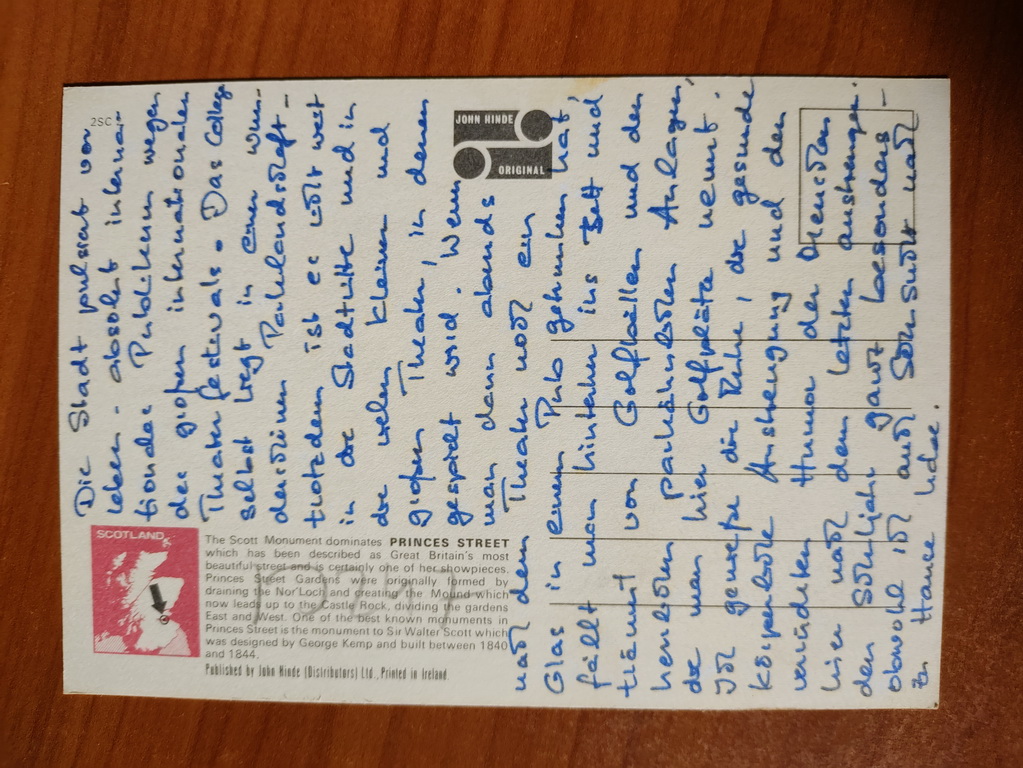 2SC
JOHN HINDE
ORIGINAL
SCOTLAND
The Scott Monument dominates PRINCES STREET
which has been described as Great Britain's most
beautiful street and is certainly one of her showpieces.
Princes Street Gardens were originally formed by
draining the Nor'Loch and creating the Mound which
now leads up to the Castle Rock, dividing the gardens
East and West. One of the best known monuments in
Princes Street is the monument to Sir Walter Scott which
was designed by George Kemp and built between 1840
and 1844.
Published by John Hinde (Distributors) Ltd., Printed in Ireland.
Die Stadt pulsiert vor
Leben - absolut interna-
tionales Publikum wegen
des großen internationalen
Theaterfestivals. Das College
selbst liegt in einer wun-
derschönen Parklandschaft -
trotzdem ist es nicht weit
in die Stadtmitte und in
die vielen kleinen und
großen Theater, in denen
gespielt wird. Wenn
man dann abends
nach dem Theater noch ein
Glas in einem Pub getrunken hat,
fällt man hinterher ins Bett und
träumt von Golfbällen und den
herrlichen parkähnlichen Anlagen,
die man hier Golfplätze nennt.
Ich genieße die Ruhe, die gesunde
körperliche Anstrengung und den
verrückten Humor der Menschen
hier nach dem letzten anstrengen-
den Schuljahr ganz besonders -
obwohl ich auch Sehnsucht nach
zu Hause habe.